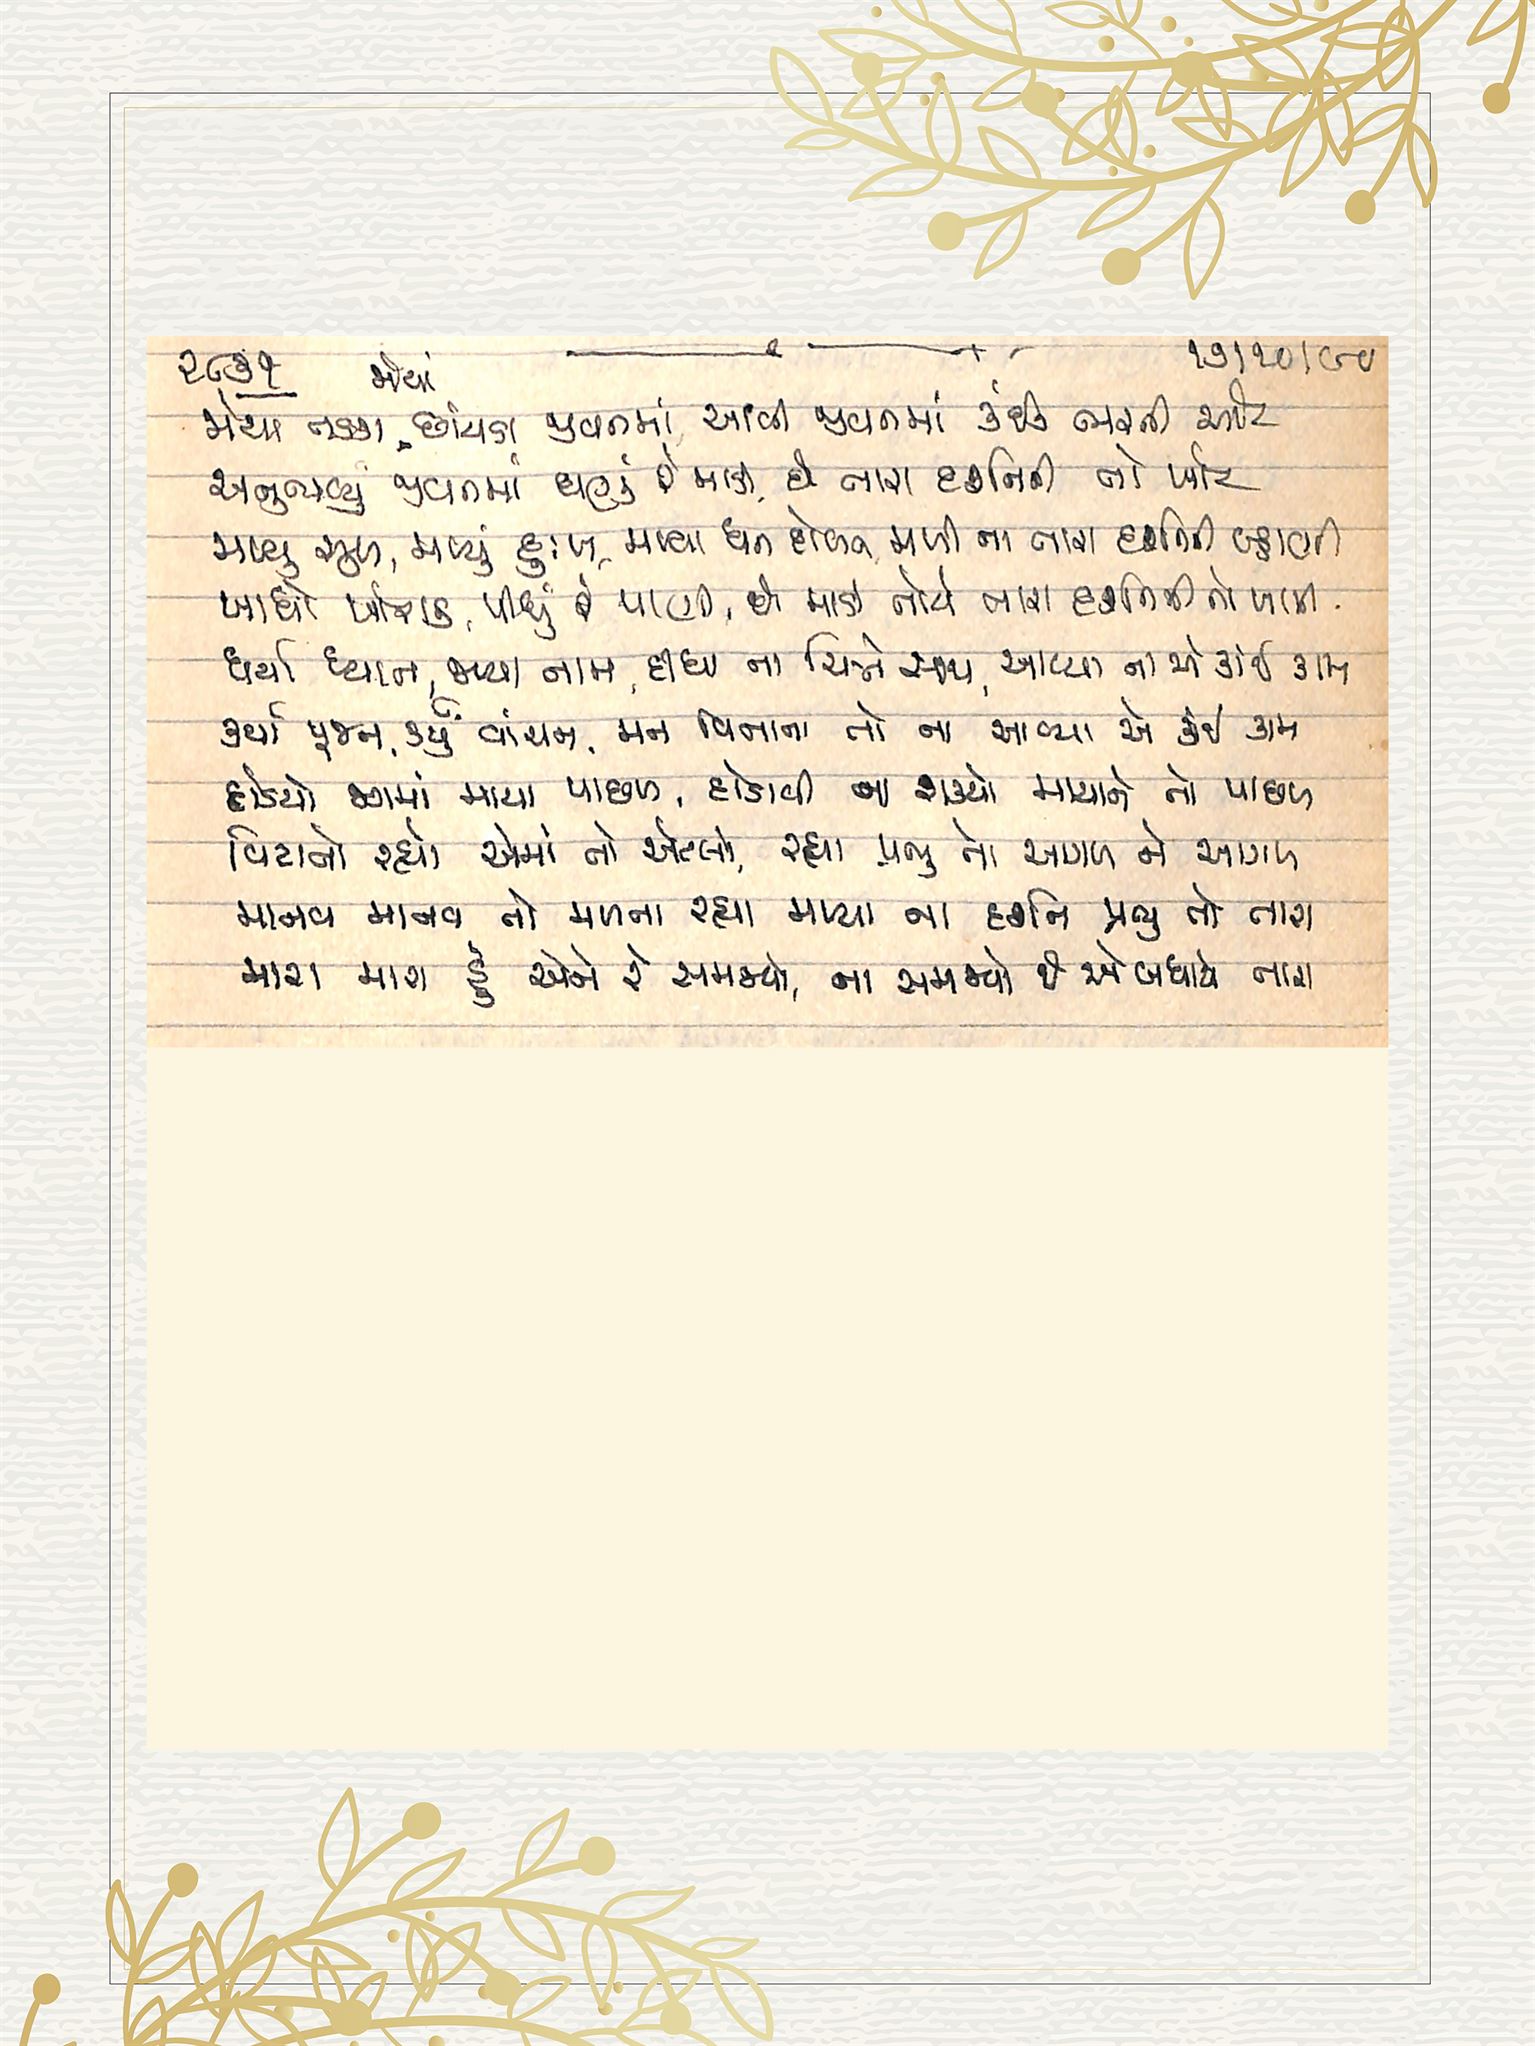 ૨૮૩૧ જોયાં ૧૭/૧૦/૯૦
જોયા તડકા છાંયડા જીવનમાં, આવી જીવનમાં કંઈક ભરતી ઓટ
અનુભવ્યું જીવનમાં ઘણું રે માડી, છે તારા દર્શનની તો ખોટ
મળ્યું સુખ, મળ્યું દુઃખ, મળ્યા ધન દોલત, મળી ના તારા દર્શનની લ્હાણી
ખાધો ખોરાક, પીધું રે પાણી, છે માડી તોયે તારા દર્શનની તો ખામી.
ધર્યા ધ્યાન, જપ્યા નામ, દીધા ના ચિત્તે સાથ, આવ્યા ના એ કાંઈ કામ
કર્યા પૂજન, કર્યું વાંચન, મન વિનાના તો ના આવ્યા એ કંઈ કામ
દોડયો જગમાં માયા પાછળ, દોડાવી ના શક્યો માયાને તો પાછળ
વિંટાતો રહ્યો એમાં તો એટલો, રહ્યા પ્રભુ તો આગળ ને આગળ
માનવ માનવ તો મળતા રહ્યા મળ્યા ના દર્શન પ્રભુ તો તારા
મારા મારા હું એને રે સમજ્યો, ના સમજ્યો છે એ બધાયે તારા